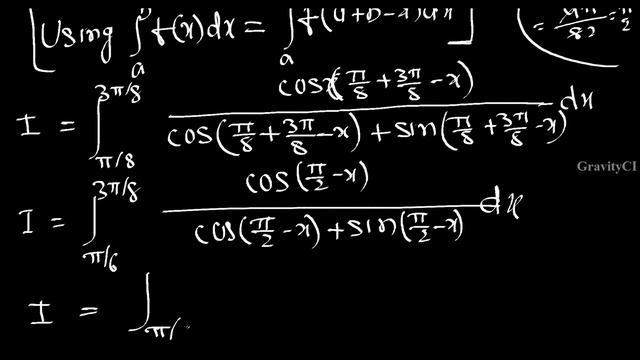 [Using ∫_a^b f(x)dx = ∫_a f(a+b-x)dx]
= 4π/8) = π/2
I = ∫_{π/8}^{3π/8} cosx(π/8 + 3π/8 - x) / cos(π/8 + 3π/8 - x) + sin(π/8 + 3π/8 - x) dx
GravityCI
I = ∫_{π/6}^{3π/8} cos(π/2 - x) / cos(π/2 - x) + sin(π/2 - x) dx
I = ∫_{π/